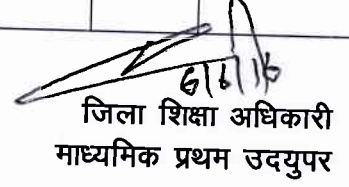 6/6/16
जिला शिक्षा अधिकारी
माध्यमिक प्रथम उदयुपर